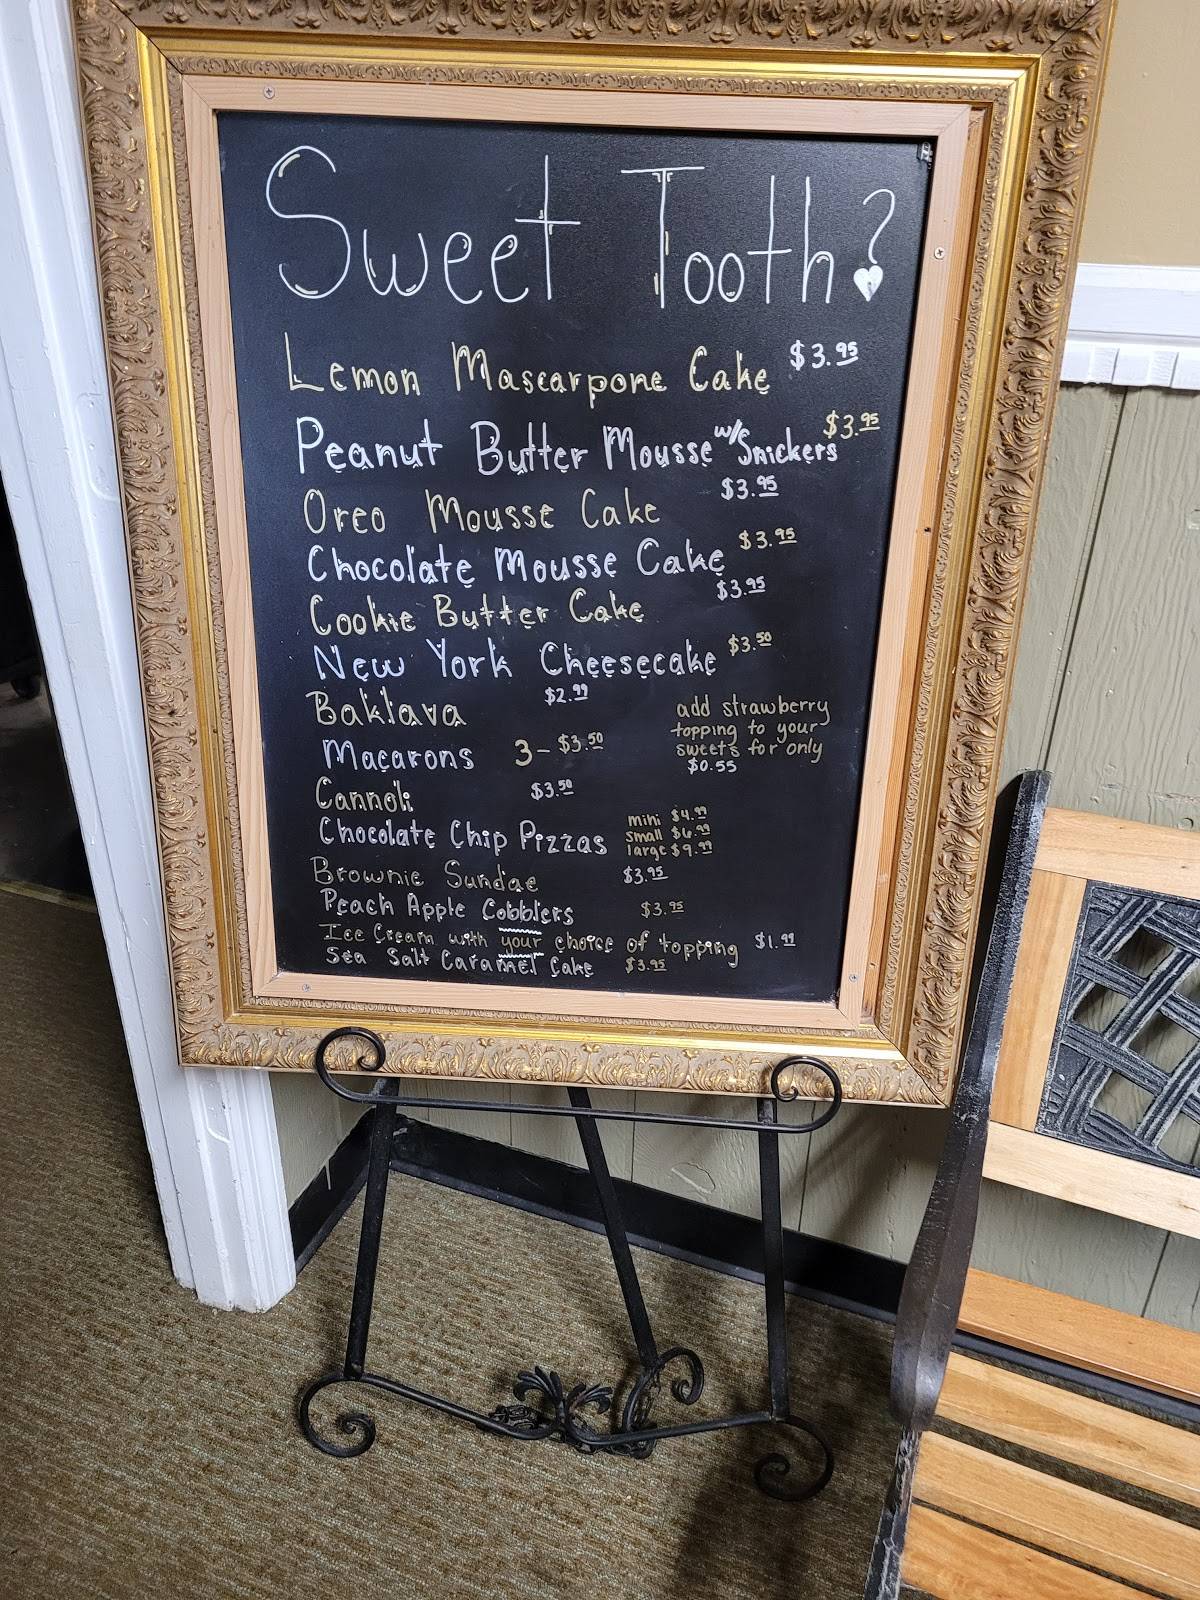 Sweet Tooth?
Lemon Mascarpone Cake $3.95
Peanut Butter Mousse w/ Snickers $3.95
Oreo Mousse Cake $3.95
Chocolate Mousse Cake $3.95
Cookie Butter Cake $3.95
New York Cheesecake $3.50
Baklava $2.99
add strawberry
topping to your
sweets for only
$0.55
Macarons 3 - $3.50
Cannoli $3.50
Chocolate Chip Pizzas
mini $4.99
small $6.99
large $9.99
Brownie Sundae $3.95
Peach Apple Cobblers $3.95
Ice Cream with your choice of topping $1.99
Sea Salt Caramel Cake $3.95